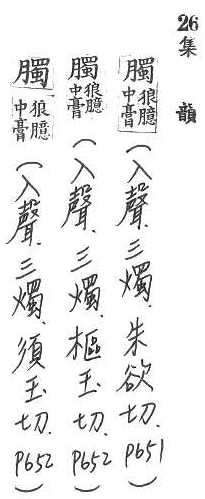 26集 韻
臅 狼臅中膏（入聲、三燭、朱欲切、P651）
臅 狼臅中膏（入聲、三燭、樞玉切、P652）
臅 狼臅中膏（入聲、三燭、須玉切、P652）